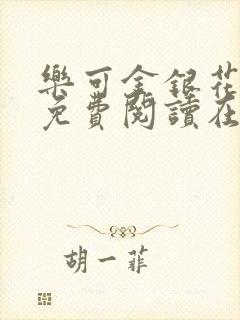 樂可金銀花
免費閱讀在
胡一菲